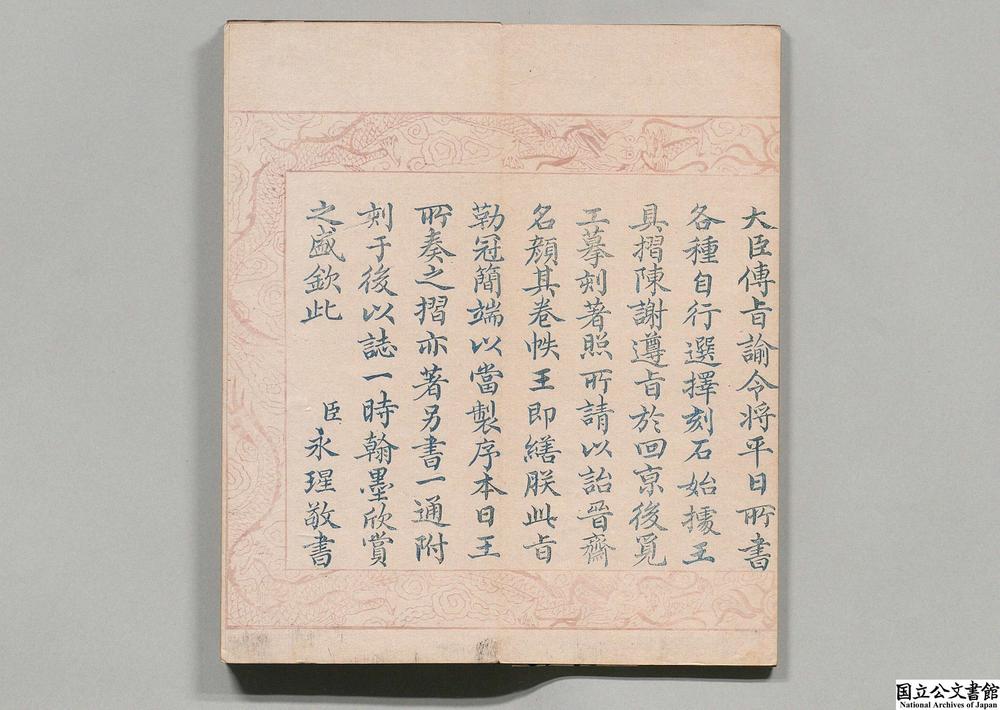 大臣傳旨諭令將平日所書
各種自行選擇刻石始據王
具摺陳謝遵旨於回京後覓
工摹刻著照所請以詒晉齋
名顏其卷帙王即繕朕此旨
勒冠簡端以當製序本日王
所奏之摺亦著另書一通附
刻于後以誌一時翰墨欣賞
之盛欽此
臣永瑆敬書
国立公文書館
National Archives of Japan